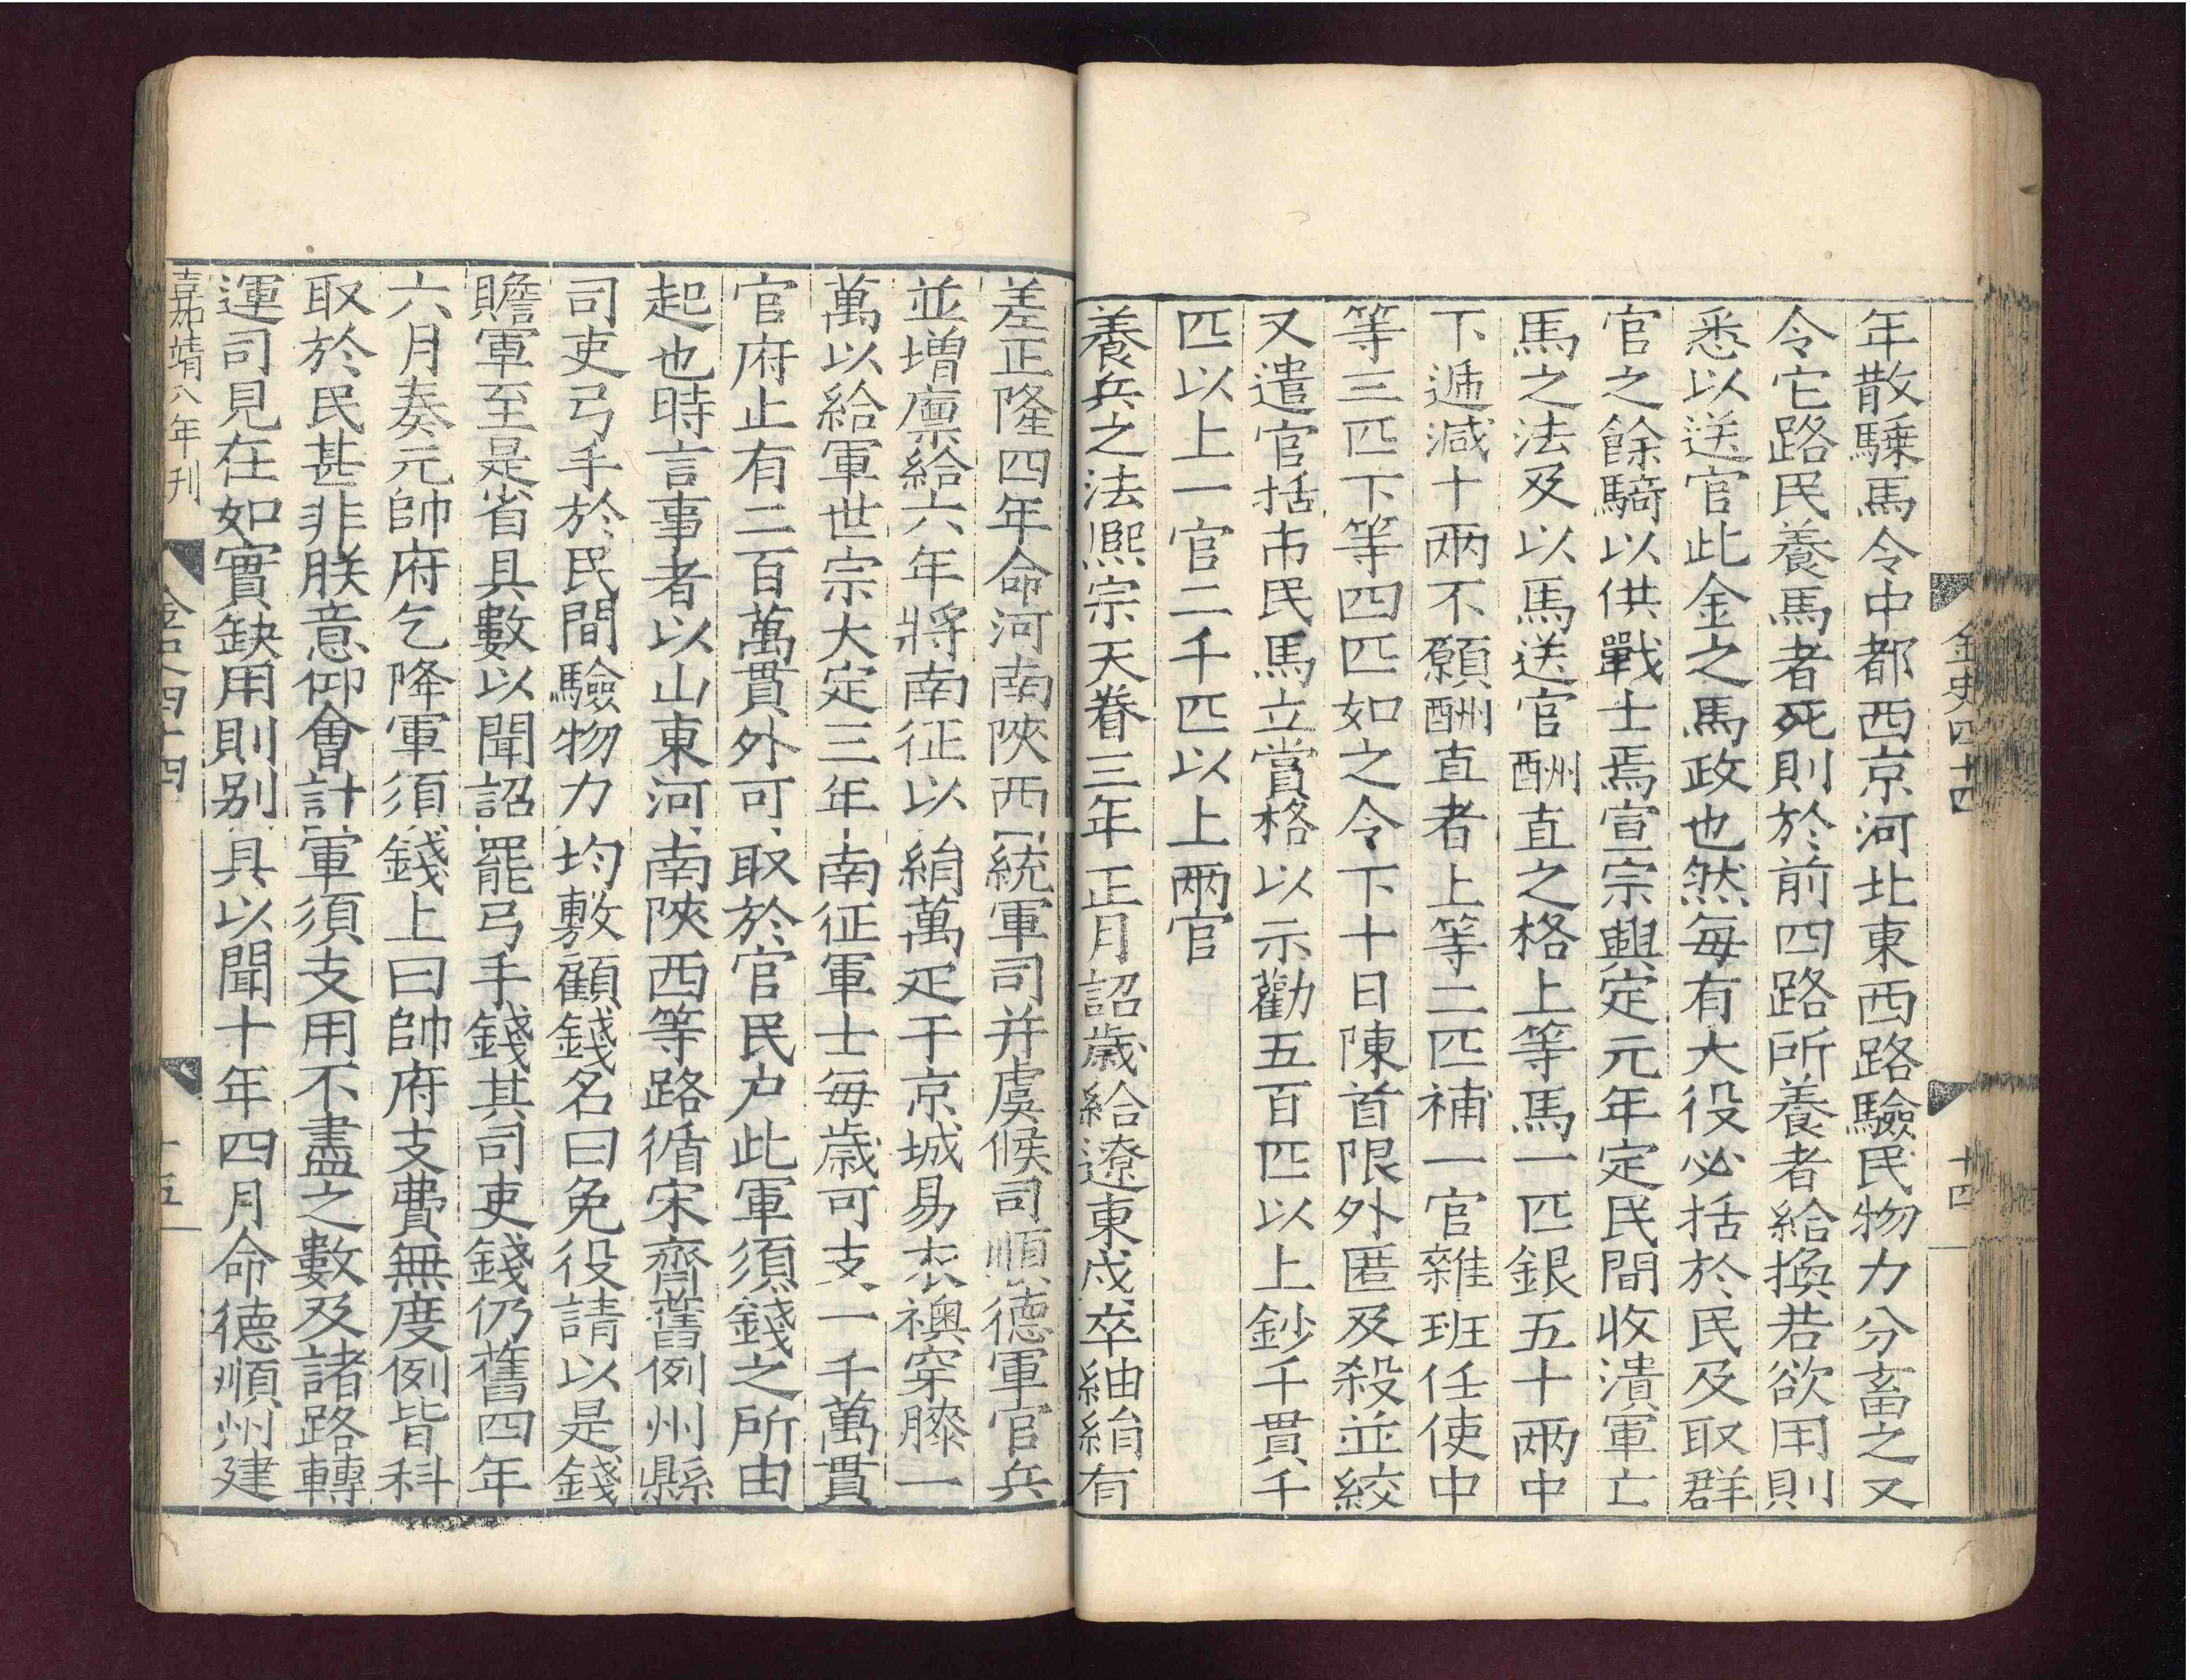 金史四十四
十四
年散騬馬令中都西京河北東西路驗民物力分畜之又
令它路民養馬者死則於前四路所養者給換若欲用則
悉以送官此金之馬政也然每有大役必括於民及取群
官之餘騎以供戰士焉宣宗興定元年定民間收潰軍亡
馬之法及以馬送官酬直之格上等馬一匹銀五十兩中
下遞减十兩不願酬直者上等二匹補一官雜班任使中
等三匹下等四匹如之令下十日陳首限外匿及殺並絞
又遣官括市民馬立賞格以示勸五百匹以上鈔千貫千
匹以上一官二千匹以上兩官
養兵之法熙宗天眷三年正月詔歲給遼東戍卒紬絹有
差正隆四年命河南陝西統軍司并虞候司順德軍官兵
並增廪給六年將南征以絹萬疋于京城易衣襖穿膝一
萬以給軍世宗大定三年南征軍士每歲可支一千萬貫
官府止有二百萬貫外可取於官民户此軍須錢之所由
起也時言事者以山東河南陝西等路循宋齊舊例州縣
司吏弓手於民間驗物力均敷顧錢名曰免役請以是錢
贍軍至是省具數以聞詔罷弓手錢其司吏錢仍舊四年
六月奏元帥府乞降軍須錢上曰帥府支費無度例皆科
取於民甚非朕意仰會計軍須支用不盡之數及諸路轉
運司見在如實缺用則别具以聞十年四月命德順州建
嘉靖八年刊
金史四十四
十五